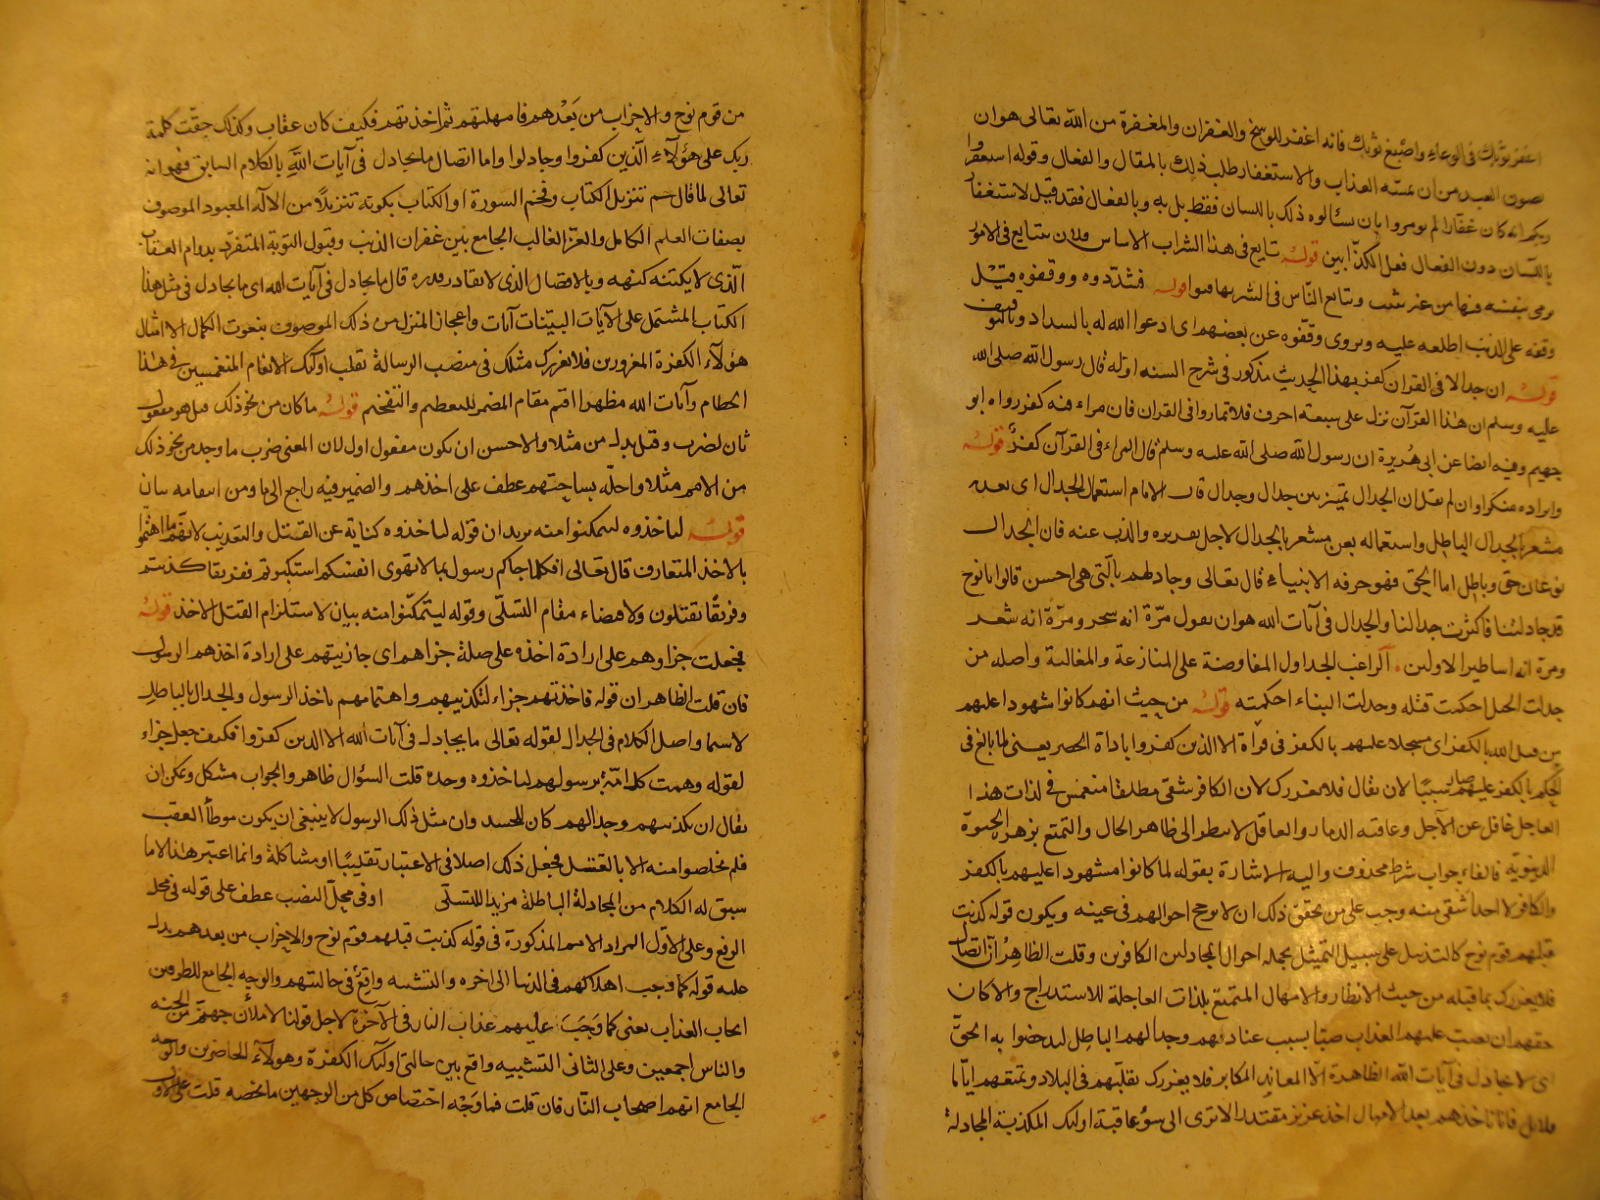 اغفر ثوبك في الوعاء واصبغ ثوبك فانه اغفر للوسخ والغفران والمغفرة من الله تعالى هو ان
يصون العبد من ان يمسه العذاب والاستغفار طلب ذلك بالمقال والفعال وقوله استغفروا
ربكم انه كان غفارا لم يومروا بان يسألوه ذلك باللسان فقط بل به وبالفعال فقد قيل الاستغفار
باللسان دون الفعال فعل الكذابين قوله تتابع في هذا الشراب الاساس فلان يتتايع في الامور
يرمي بنفسه فيها من غير تثبت وتتايع الناس في الشر تهافتوا قوله فسددوه ووقفوه قيل
وقفه على الذنب اطلعه عليه ويروى وقفوه عن بعضهم اي ادعوا الله له بالسداد والتوقيف
قوله ان جدالا في القرآن كفر بهذا الحديث مذكور في شرح السنه اوله قال رسول الله صلى الله
عليه وسلم ان هذا القرآن نزل على سبعة احرف فلا تماروا في القران فان مراء فيه كفر رواه ابو
جهيم وفيه ايضا عن ابي هريرة ان رسول الله صلى الله عليه وسلم قال المراء في القرآن كفر قوله
وايراده منكرا وان لم يقل ان الجدال تمييز بين جدال وجدال قال الامام استعمال الجدال اى تعديه
مشعر بالجدال الباطل واستعماله بعن مشعر بالجدال لاجل تقريره والذب عنه فان الجدال
نوعان حق وباطل اما الحق فهو حرفه الانبياء قال تعالى وجادلهم بالتي هي احسن قالوا يا نوح
قد جادلتنا فاكثرت جدالنا والجدال في آيات الله هو ان يقول مرّة انه سحر ومرّة انه شعر
ومرة انه اساطير الاولين الراغب الجدال المفاوضة على المنازعة والمغالبة واصله من
جدلت الحبل احكمت فتله وجدلت البناء احكمته قوله من حيث انهم كانوا شهودا عليهم
من قبل الله بالكفر اى مسجلا عليهم بالكفر في قراة الا الذين كفروا باداة الحصر يعني لما بالغ في
الحكم بالكفر عليهم صار سببا لان يقال فلا يغررك لان الكافر شقي مطلقا منغمس في لذات هذا
العاجل غافل عن الآجل وعاقبته الدمار والعاقل لا ينظر الى ظاهر الحال والتمتع بزهرة الحيوة
الدنيوية فالفاء جواب شرط محذوف واليه الاشارة بقوله لما كانوا مشهودا عليهم بالكفر
والكافر لا احد اشقى منه وجب على من تحقق ذلك ان لا ترجح احوالهم في عينه ويكون قوله كذبت
قبلهم قوم نوح كالتذييل على سبيل التمثيل بجملة احوال المجادلين الكافرين وقلت الظاهر ان اتصال
فلا يغررك بما قبله من حيث الانظار والامهال المتمتع بلذات العاجلة للاستدراج والا كان
حقهم ان يصب عليهم العذاب صبا بسبب عنادهم وجدالهم الباطل ليدحضوا به الحق
اى لا يجادل في آيات الله الظاهرة الا المعاند المكابر فلا يغررك تقلبهم في البلاد وتمتعهم اياما
قلائل فانا ناخذهم بعد الامهال اخذ عزيز مقتدر الا ترى الى سوء عاقبة اولئك المكذبة المجادلة
من قوم نوح والاحزاب من بعدهم فامهلتهم ثم اخذتهم فكيف كان عقاب وكذلك حقت كلمة
ربك على هؤلاء الذين كفروا وجادلوا واما اتصال ما يجادل في آيات الله بالكلام السابق فهو انه
تعالى لما قال حم تنزيل الكتاب وفخم السورة او الكتاب بكونه تنزيلاً من الاله المعبود الموصوف
بصفات العلم الكامل والعز الغالب الجامع بين غفران الذنب وقبول التوبة المتفرد بدوام العقاب
الذي لا يكتنه كنهه وبالافضال الذى لا يقادر قدره قال ما يجادل في آيات الله اى ما يجادل في مثل هذا
الكتاب المشتمل على الآيات البينات آيات واعجاز المنزل من ذلك الموصوف بنعوت الكمال الا امثال
هؤلاء الكفرة المغرورين فلا يغررك مثلك في منصب الرسالة تقلب اولئك الانعام المنغمسين في هذا
الحطام وآيات الله مظهر اقيم مقام المضمر للتعظيم والتفخيم قوله ما كان من نحو ذلك قيل هو مفعول
ثان لضرب وقيل بدل من مثلا والاحسن ان يكون مفعول اول لان المعنى ضرب ما وجد من نحو ذلك
من الامم مثلا واحلّه بساحتهم عطف على اخذهم والضمير فيه راجع الى ما ومن انتقامه بيان
قوله لياخذوه ليتمكنوا منه يريد ان قوله لياخذوه كناية عن القتل والتعذيب لانهم ما اهتموا
بالاخذ المتعارف قال تعالى افكلما جاءكم رسول بما لا تهوى انفسكم استكبرتم ففريقا كذبتم
وفريقا تقتلون ولاقتضاء مقام التسلّي وقوله ليتمكنوا منه بيان لاستلزام القتل الاخذ قوله
فجعلت جزاءهم على ارادة اخذه على صلة جزاهم اى جازيتهم على ارادة اخذهم الرسول
فان قلت الظاهر ان قوله فاخذتهم جزاء لتكذيبهم واهتمامهم باخذ الرسول والجدال بالباطل
لاسيما واصل الكلام في الجدال لقوله تعالى ما يجادل في آيات الله الا الذين كفروا فكيف جعل جزاء
لقوله وهمت كل امّة برسولهم لياخذوه وحده قلت السؤال ظاهر والجواب مشكل ويمكن ان
يقال ان تكذيبهم وجدالهم كان للحسد وان مثل ذلك الرسول لا ينبغي ان يكون موطأ العقب
فلم يخلصوا منه الا بالقتل فجعل ذلك اصلا في الاعتبار تغليبا او مشاكلة وانما اعتبر هذا لا ما
سبق له الكلام من المجادلة الباطلة مزيدا للتسلّي او في محل النصب عطف على قوله في محل
الرفع وعلى الاول المراد الامم المذكورة في قوله كذبت قبلهم قوم نوح والاحزاب من بعدهم يدل
عليه قوله كما وجب اهلاكهم في الدنيا الى اخره والتشبيه واقع في حالتيهم والوجه الجامع للطرفين
ايجاب العذاب يعنى كما وَجَبَ عليهم عذاب النار في الآخرة لاجل قولنا لاملأن جهنم من الجنة
والناس اجمعين وعلى الثانى التشبيه واقع بين حالتي اولئك الكفرة وهولاء الحاضرين والوجه
الجامع انهم اصحاب النار فان قلت فما وجه اختصاص كل من الوجهين ما يخصه قلت على الاول